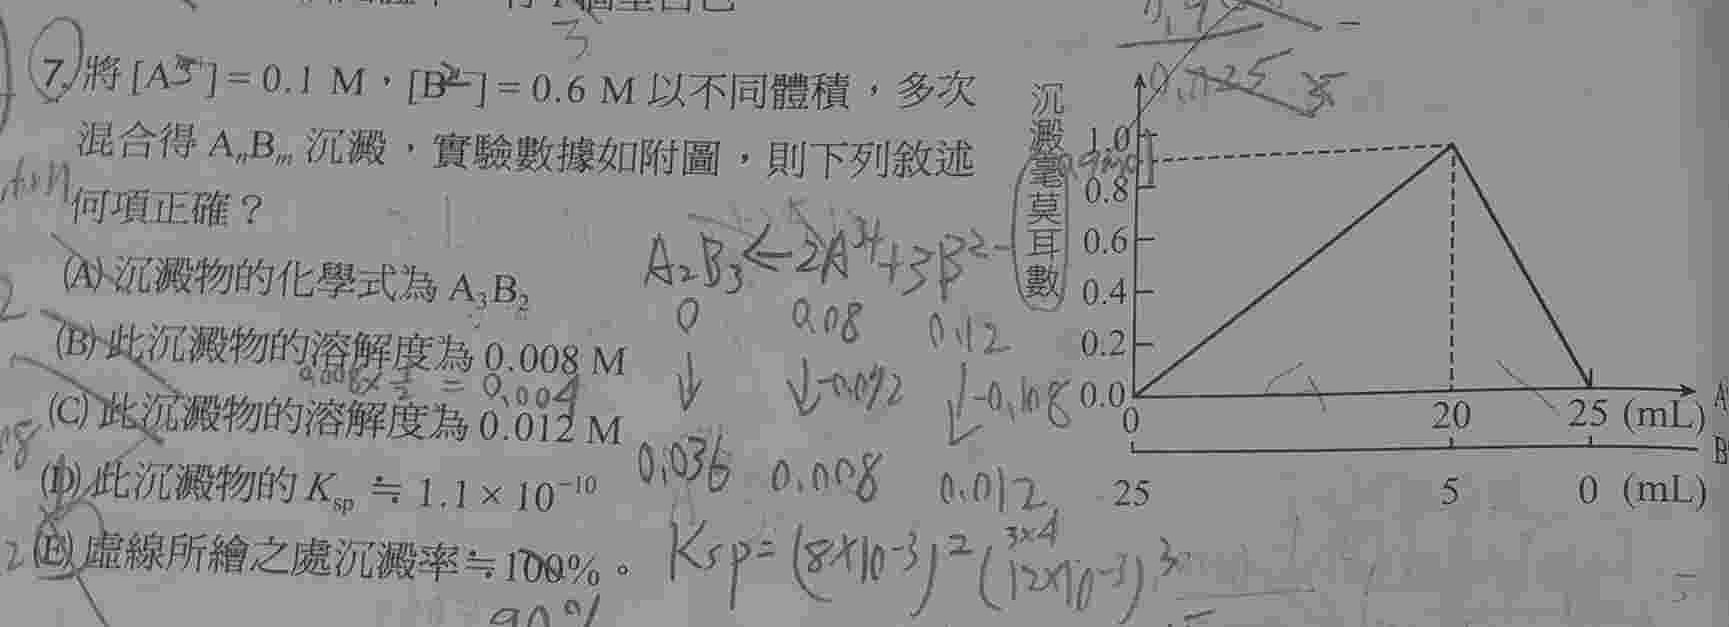 3
7. 將 [A³⁺] = 0.1 M，[B²⁻] = 0.6 M 以不同體積，多次
混合得 AₙBₘ 沉澱，實驗數據如附圖，則下列敘述
何項正確？
(A) 沉澱物的化學式為 A₃B₂
(B) 此沉澱物的溶解度為 0.008 M
0.008 × 1/2 = 0.004
(C) 此沉澱物的溶解度為 0.012 M
(D) 此沉澱物的 Ksp ≒ 1.1 × 10⁻¹⁰
(E) 虛線所繪之處沉澱率 ≒ 100%。
90%
A₂B₃ ← 2A³⁺ + 3B²⁻
0 0.08 0.12
↓ ↓-0.072 ↓-0.108
0.036 0.008 0.012
3×4
Ksp = (8×10⁻³)² (12×10⁻³)³
沉澱毫莫耳數
1.0
0.8
0.6
0.4
0.2
0.0
0 20 25 (mL) A
B
25 5 0 (mL)